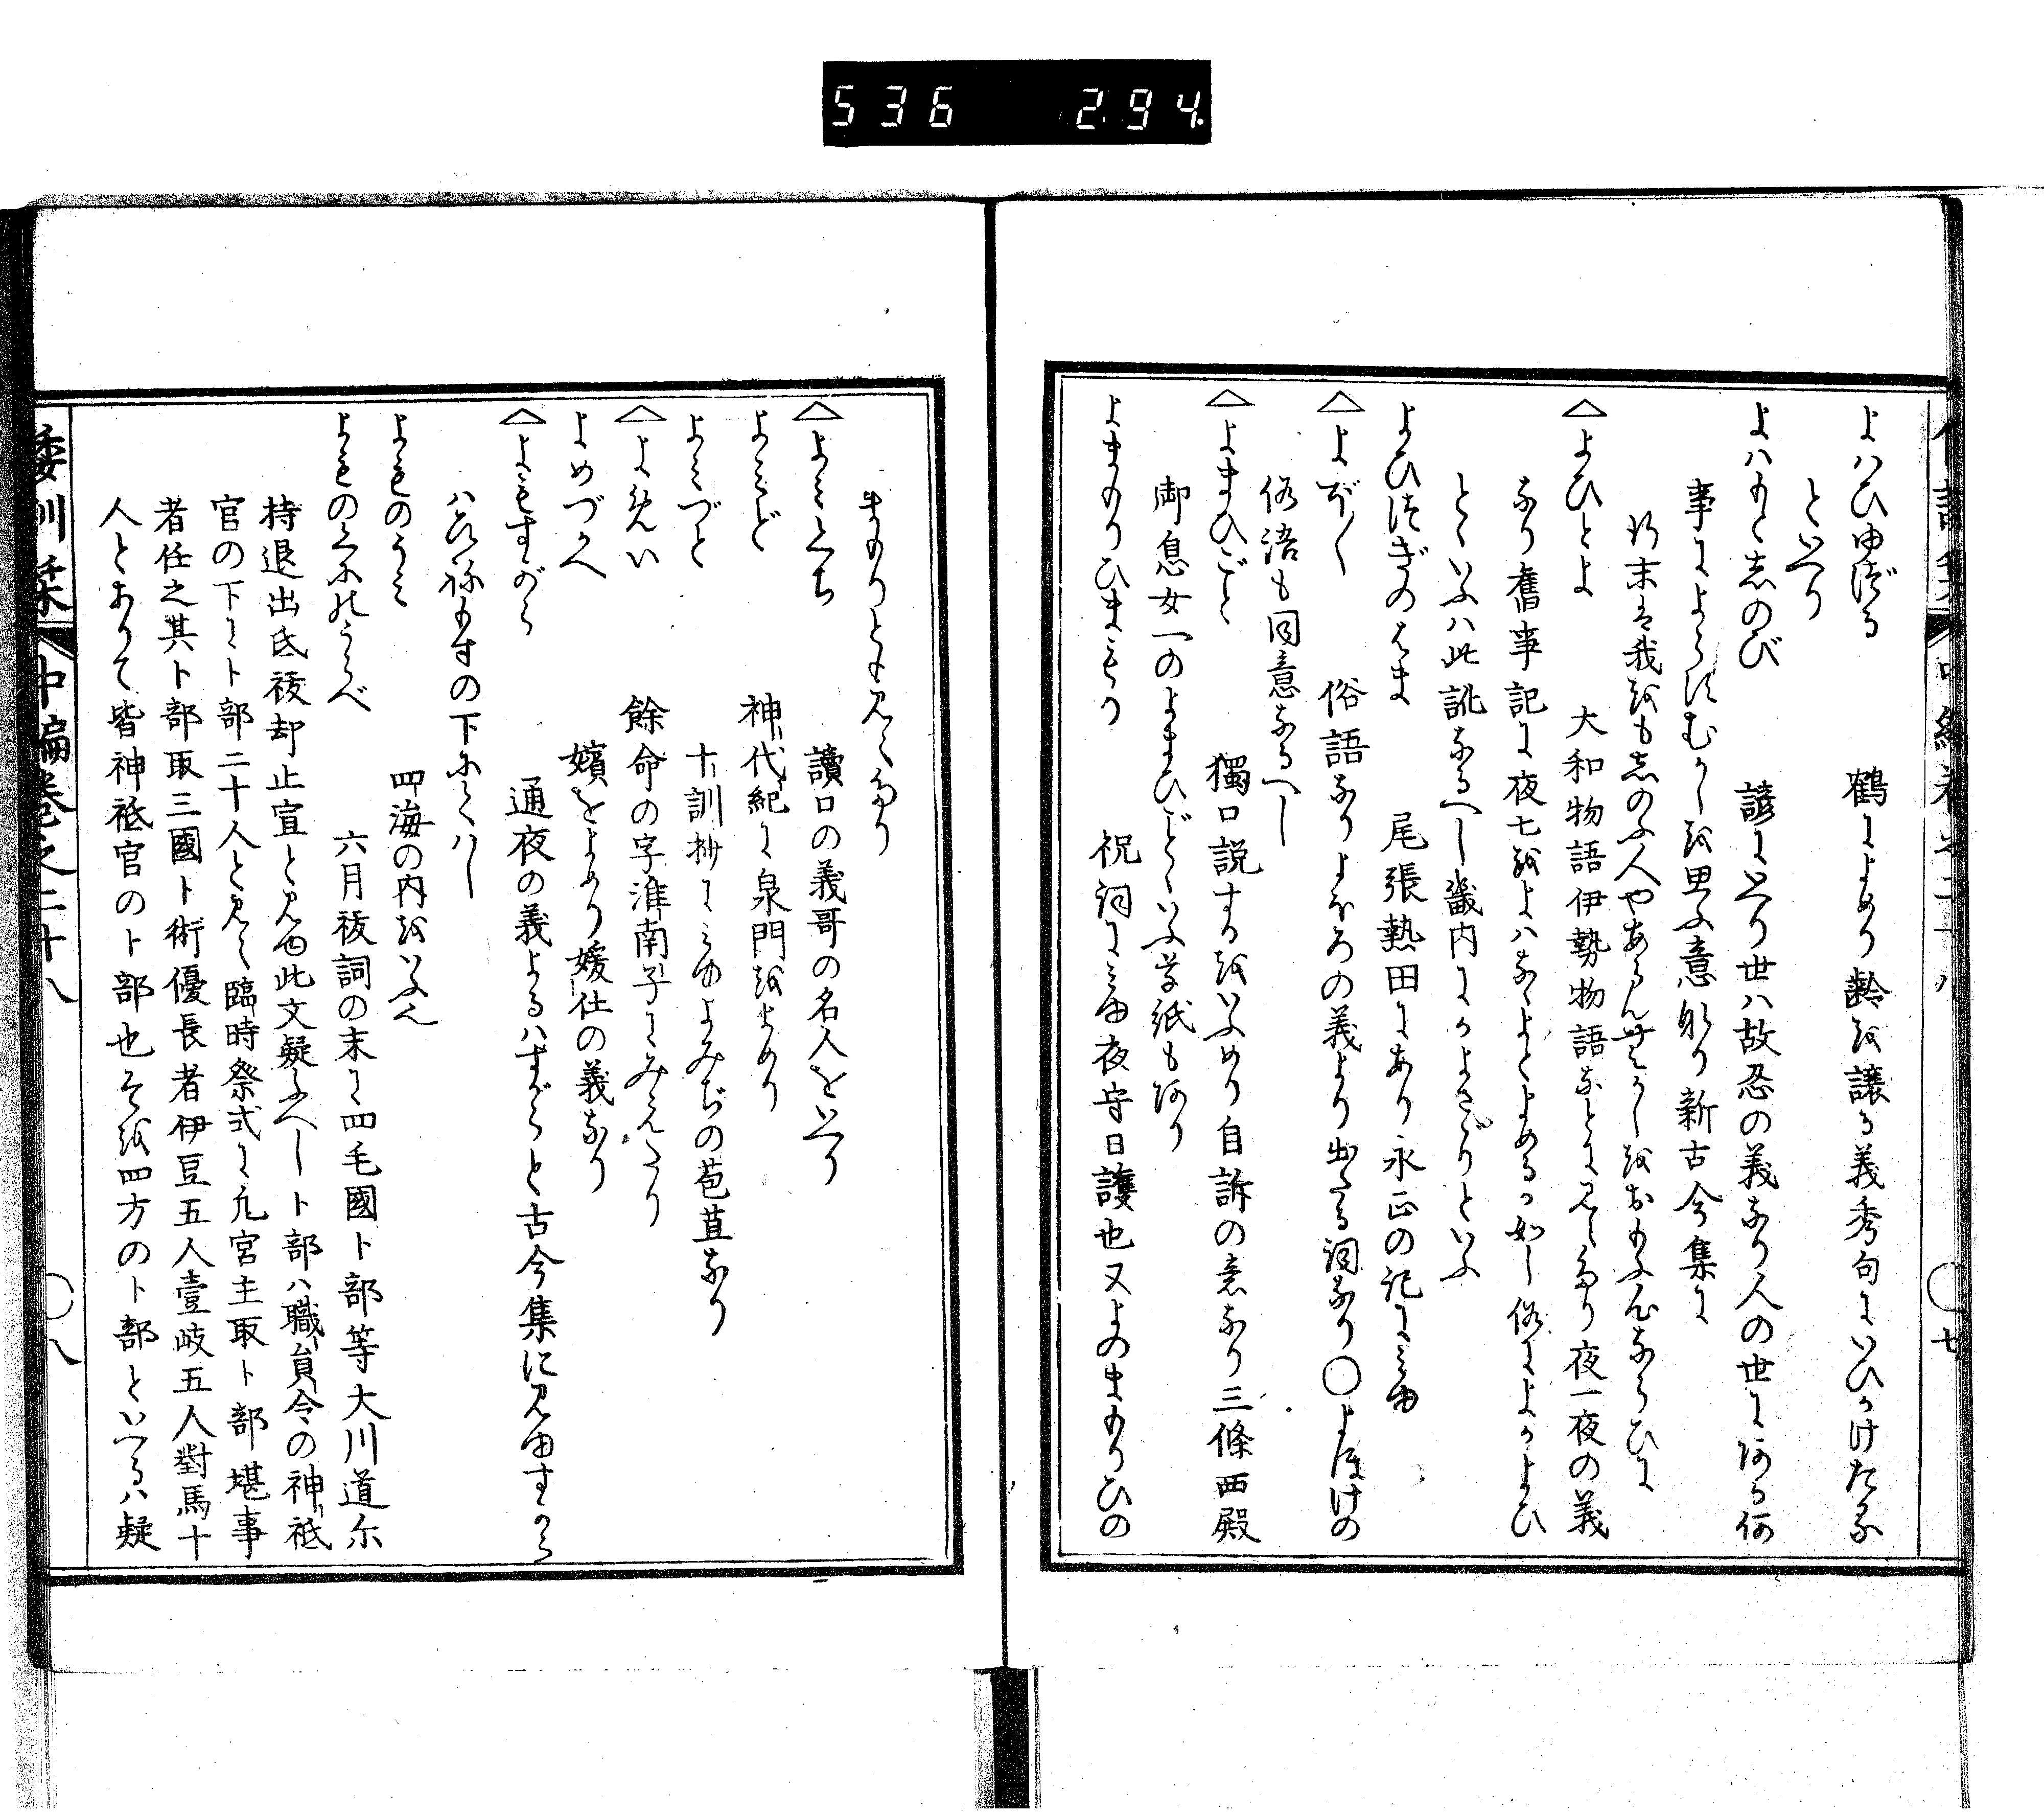 536 294
よハひゆづる 鶴によめり齢を譲る義秀句にいひかけたる
といへり
よハもゝしのび 諺にいへり世ハ故忍の義なり人の世にある何
事によらずむかしを思ふ意なり新古今集に
行末は我をもしのふ人やあらんむかしをおもふ心ならひに
△よひとよ 大和物語伊勢物語なとに見えたり夜一夜の義
なり舊事記に夜七夜よハなゝよとよめるか如し俗によかよひ
とゝいふハ此訛なるへし畿内によかよさどりといふ
よひつぎのはま 尾張熱田にあり永正の記にみゆ
△よぼ〱 俗語なりよわろの義より出たる詞なり〇よぼけの
俗語も同意なるへし
△よまひごと 獨口説するをいふめり自訴の意なり三條西殿
御息女一のよまひごとゝいふ草紙もあり
よまもりひまもり 祝詞にみゆ夜守日護也又よのまもりひの
まもりとも見えたり
△よみくち 讀口の義哥の名人をいへり
よみど 神代紀に泉門をよめり
よみづと 十訓抄にみゆよみぢの苞苴なり
△よめい 餘命の字淮南子にみえたり
よめづかへ 嬪をよめり媛仕の義なり
△よもすがら 通夜の義よるハすがらと古今集に見ゆすから
ハひねもすの下にくハし
よものうみ 四海の内をいふ也
よものくにのうらべ 六月祓詞の末に四毛國卜部等大川道尓
持退出氐祓却止宣と見ゆ此文疑ふへし卜部ハ職員令の神祇
官の下に卜部二十人と見え臨時祭式に凡宮主取卜部堪事
者任之其卜部取三國卜術優長者伊豆五人壹岐五人對馬十
人とありて皆神祇官の卜部也そを四方の卜部といへるハ疑
倭訓栞 中編巻之二十八 〇八